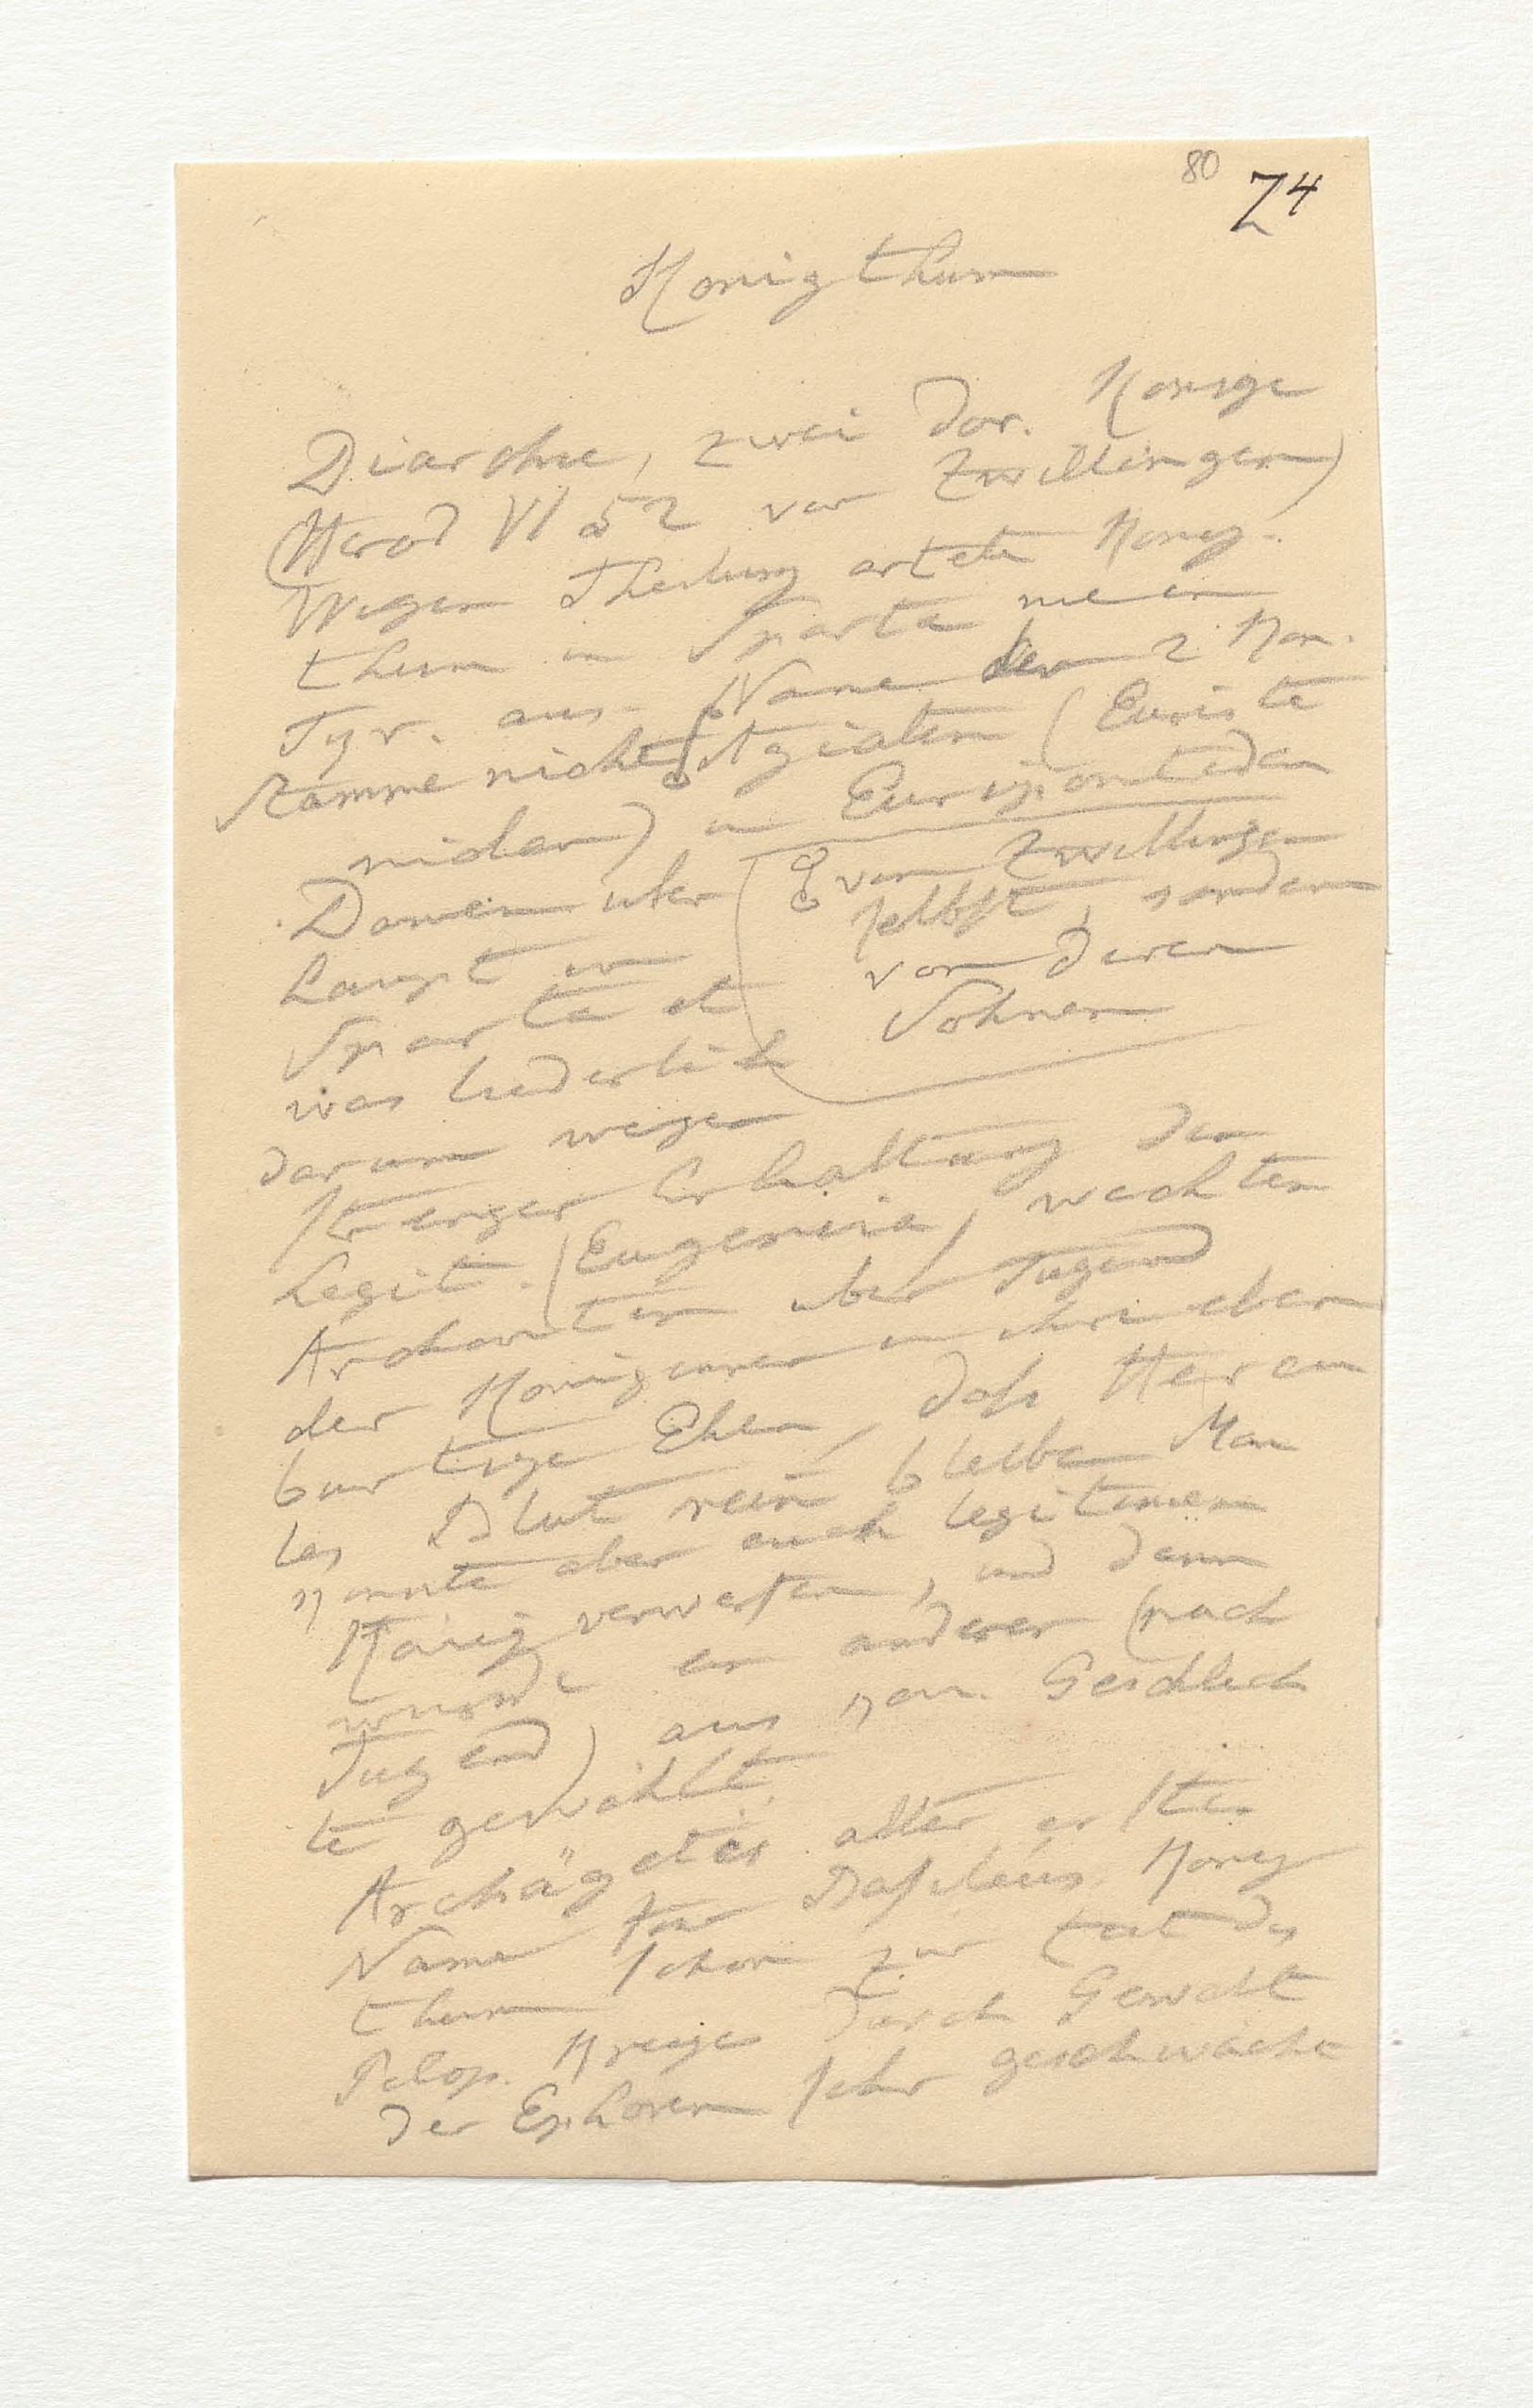 80 Z4
Konigthum
Diarchie, zwei dor. Konige
(Herod VI 52 von Zwillingen)
Wegen Theilung artete Konig-
thum in Sparta nie in
Tyr. aus. Name der 2 Kon.
Stamme nicht Agiaten (Euriste
niden) u Euripontiden
von Zwillingen
selbst, sondern
von deren
Sohnen
Damen uber
haupt in
Sparta et
was liederlich
darum wegen
strenger Erhaltung der
Legit. (Eugeneia) wachten
Archonten uber Tugend
der Koniginnen u ihre eben
burtige Ehen, dass Herau
les Blut rein bleibe Man
konnte aber auch legitimen
König verwerfen, und dann
wurde ein anderer (nach
Tugend) aus kon. Geschlech
te gewählt.
Archägetes alter erster
Name für Basileus. Konig
thum schon zur Zeit des
Pelop. Krieges durch Gewalt
der Ephoren sehr geschwächt